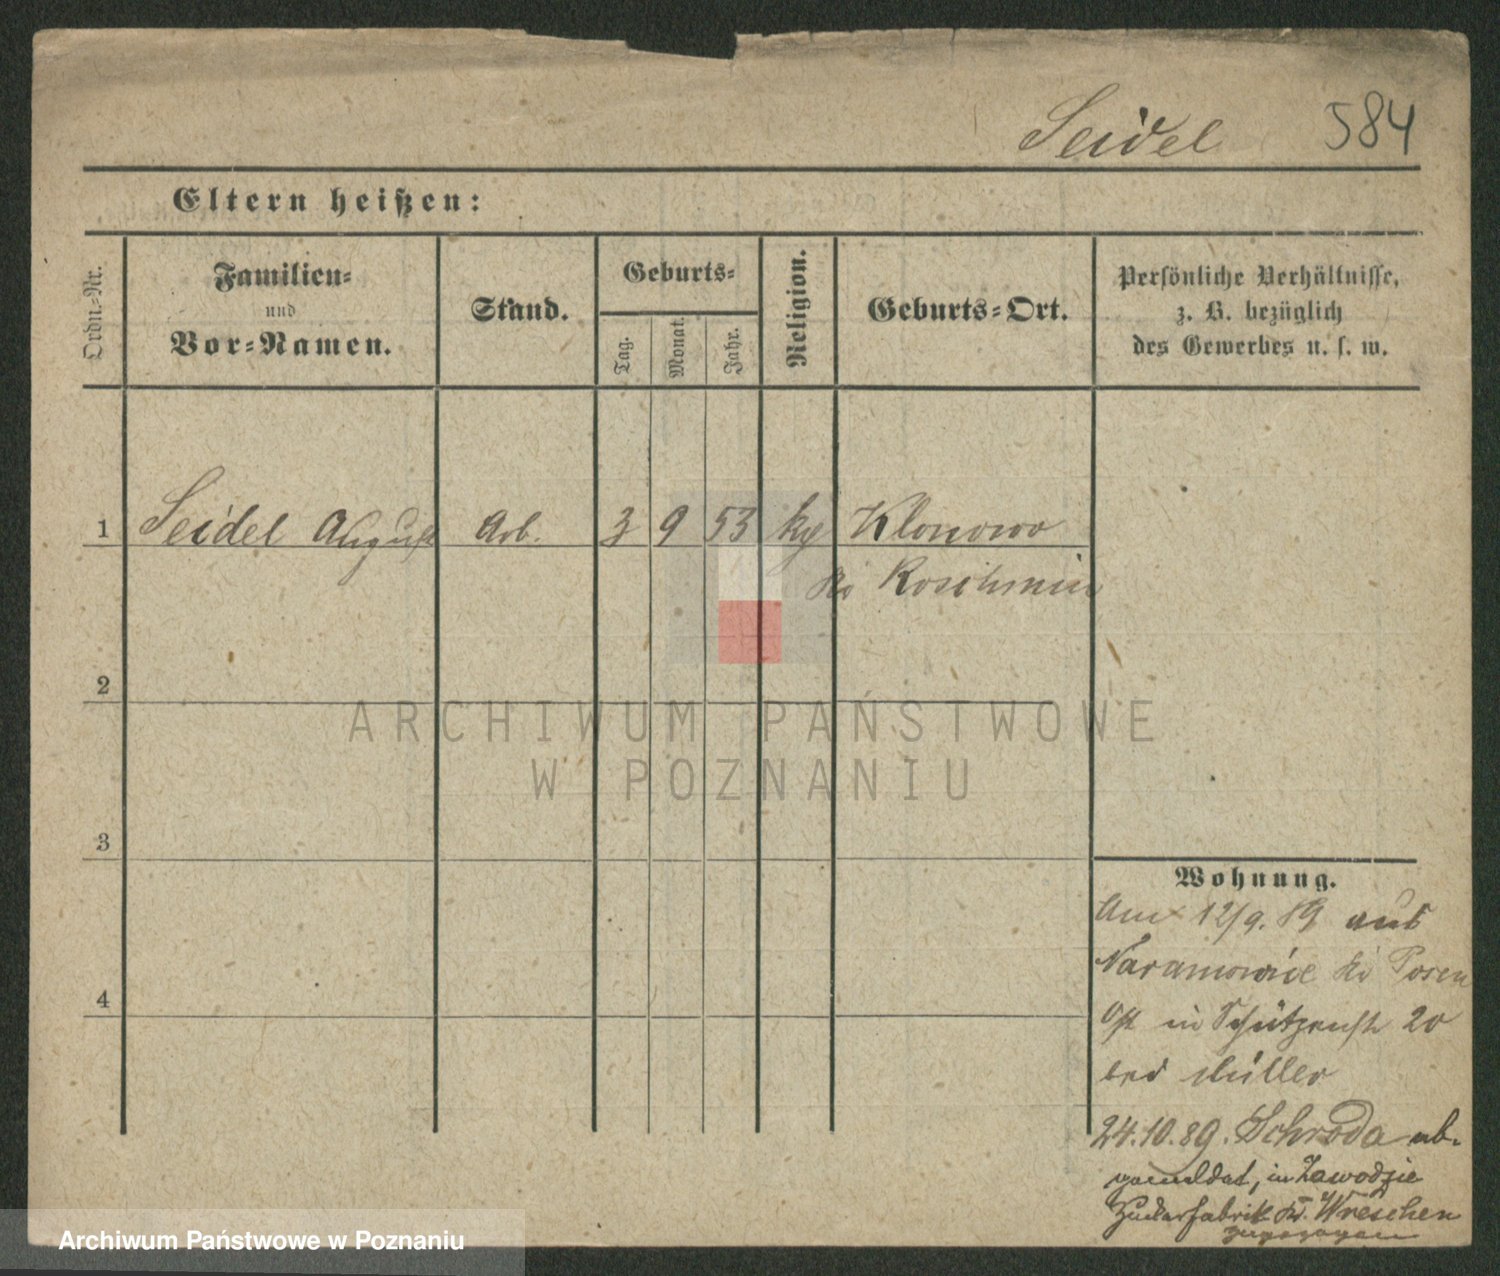 Seidel 584
Eltern heißen:
Ordn.-Nr.
Familien-
und
Vor-Namen.
Stand.
Geburts-
Tag.
Monat.
Jahr.
Religion.
Geburts-Ort.
Persönliche Verhältnisse,
z. B. bezüglich
des Gewerbes u. s. w.
1 Seidel August Arb. 3 9 53 kg Klonowo
Kr Koschmin
2
3
4
Wohnung.
Am 12/9. 89 aus
Naramowice Kr Posen
Ost in Schützenstr 20
bei Müller
24.10.89. Schroda ab-
gemeldet, in Zawodzie
Zuckerfabrik Kr. Wreschen
zugezogen
ARCHIWUM PAŃSTWOWE
W POZNANIU
Archiwum Państwowe w Poznaniu